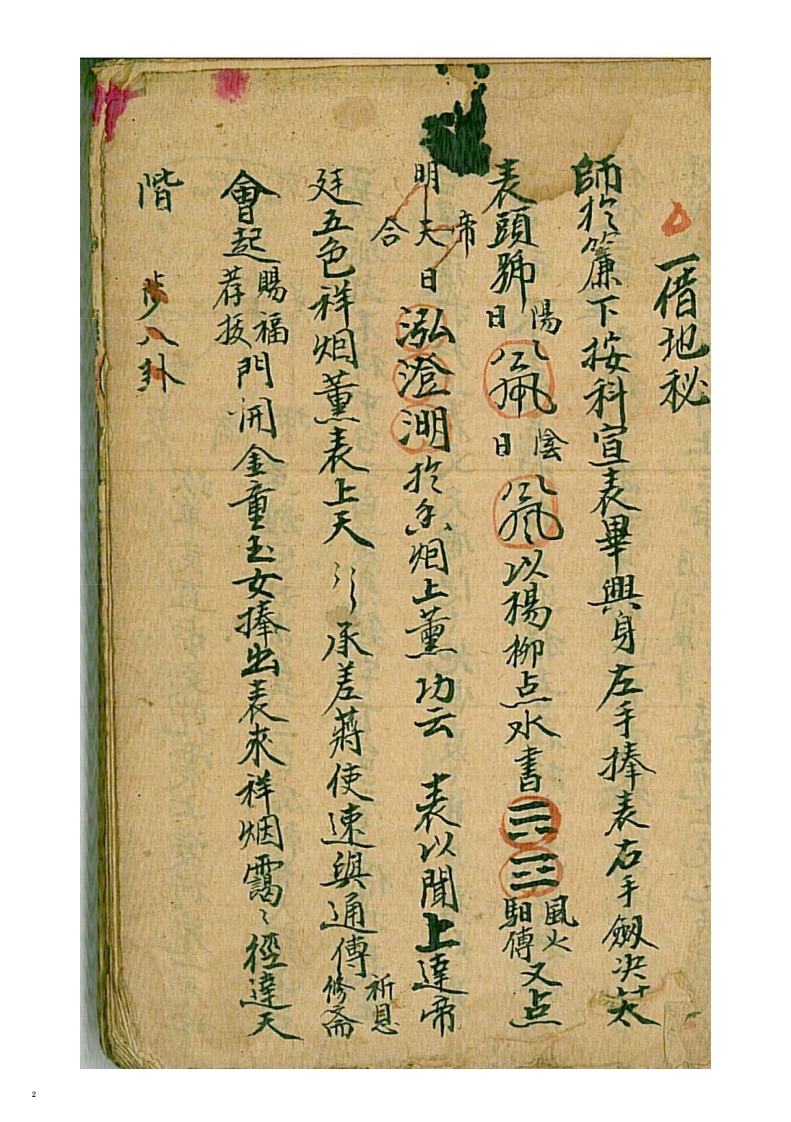 一借地秘
師於簾下按科宣表畢興身左手捧表右手劔决
表頭號陽曰陰曰以楊柳点水書☲☳風火馹傳又点
明天曰帝合泓澄湖於香烟上薰功云 表以聞上達帝
廷五色祥烟薰表上天〻〻承差蔣使速與通傳祈恩修斋
會起賜福荐拔門開金童玉女捧出表來祥烟靄〻徑達天
階 步八卦
2